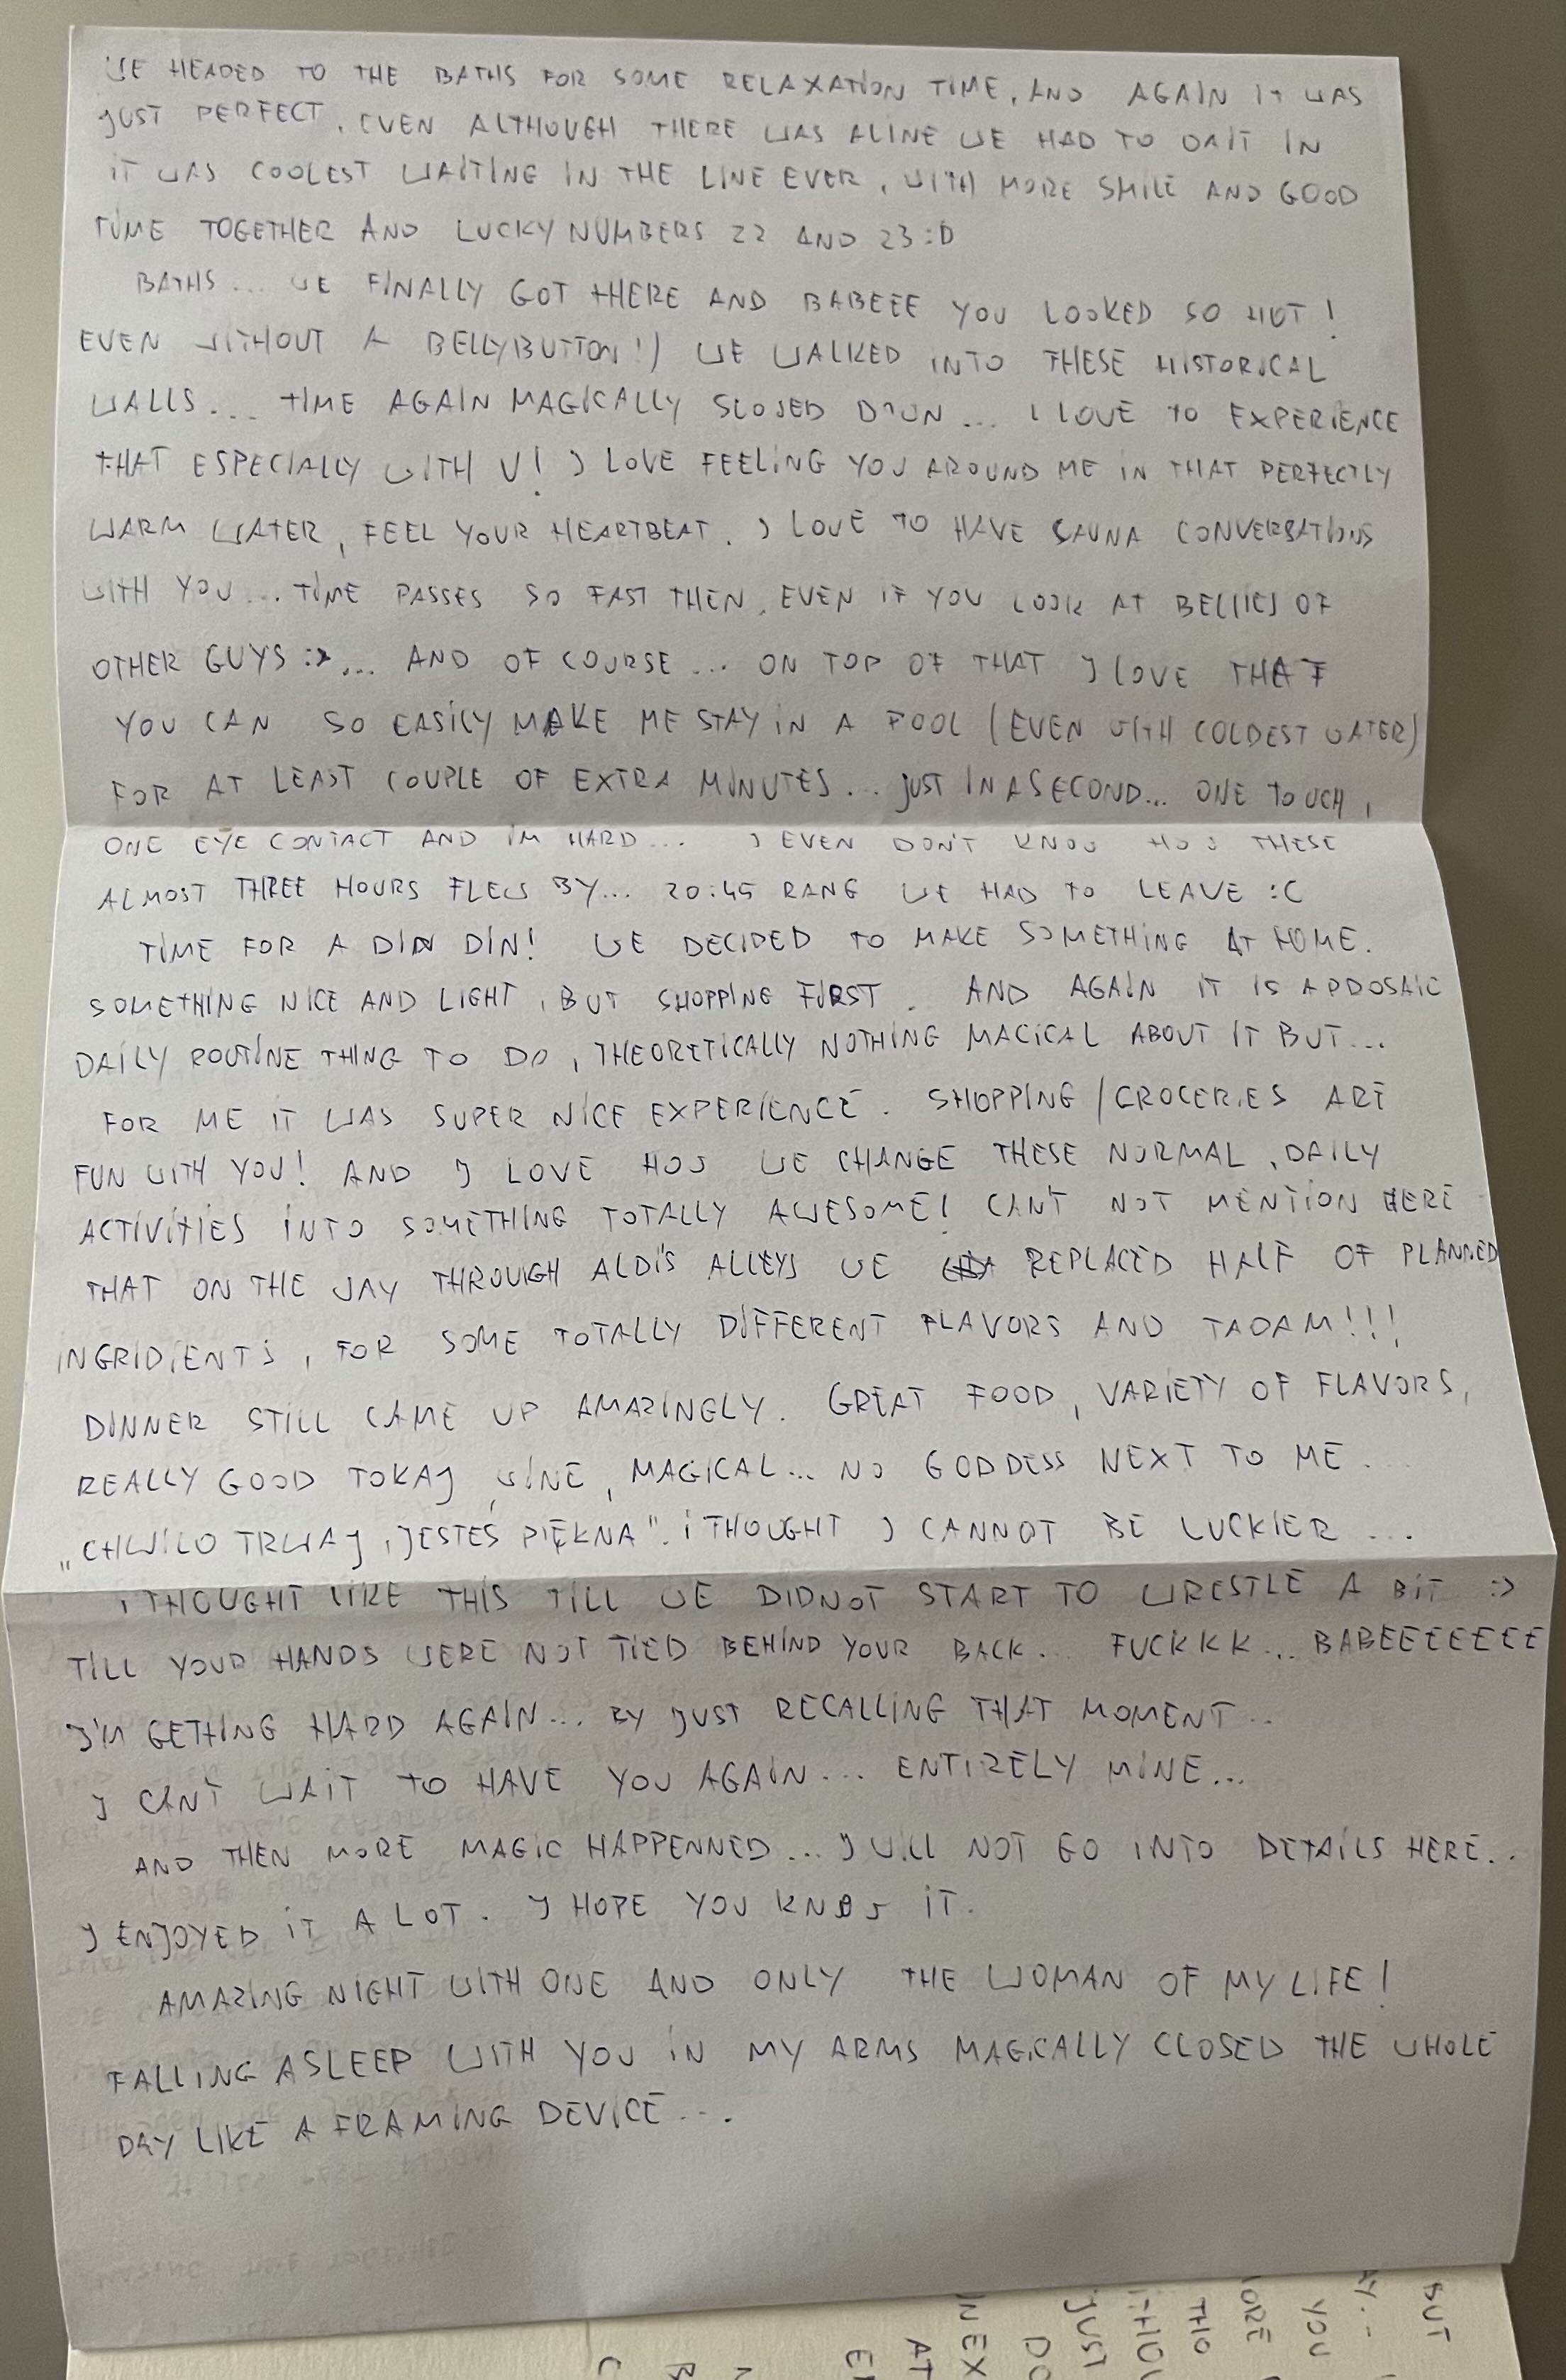 WE HEADED TO THE BATHS FOR SOME RELAXATION TIME, AND AGAIN IT WAS
JUST PERFECT. EVEN ALTHOUGH THERE WAS ALINE WE HAD TO WAIT IN
IT WAS COOLEST WAITING IN THE LINE EVER, WITH MORE SMILE AND GOOD
TIME TOGETHER AND LUCKY NUMBERS 22 AND 23 :D
BATHS... WE FINALLY GOT THERE AND BABEEE YOU LOOKED SO HOT!
EVEN WITHOUT A BELLYBUTTON!) WE WALKED INTO THESE HISTORICAL
WALLS... TIME AGAIN MAGICALLY SLOWED DOWN... I LOVE TO EXPERIENCE
THAT ESPECIALLY WITH U! I LOVE FEELING YOU AROUND ME IN THAT PERFECTLY
WARM WATER, FEEL YOUR HEARTBEAT. I LOVE TO HAVE SAUNA CONVERSATIONS
WITH YOU... TIME PASSES SO FAST THEN, EVEN IF YOU LOOK AT BELLIES OF
OTHER GUYS :>... AND OF COURSE... ON TOP OF THAT I LOVE THAT
YOU CAN SO EASILY MAKE ME STAY IN A POOL (EVEN WITH COLDEST WATER)
FOR AT LEAST COUPLE OF EXTRA MINUTES... JUST IN A SECOND... ONE TOUCH,
ONE EYE CONTACT AND IM HARD... I EVEN DON'T KNOW HOW THESE
ALMOST THREE HOURS FLEW BY... 20:45 RANG WE HAD TO LEAVE :C
TIME FOR A DIN DIN! WE DECIDED TO MAKE SOMETHING AT HOME.
SOMETHING NICE AND LIGHT, BUT SHOPPING FIRST. AND AGAIN IT IS A PROSAIC
DAILY ROUTINE THING TO DO, THEORETICALLY NOTHING MAGICAL ABOUT IT BUT...
FOR ME IT WAS SUPER NICE EXPERIENCE. SHOPPING/GROCERIES ARE
FUN WITH YOU! AND I LOVE HOW WE CHANGE THESE NORMAL, DAILY
ACTIVITIES INTO SOMETHING TOTALLY AWESOME! CAN'T NOT MENTION HERE
THAT ON THE WAY THROUGH ALDI'S ALLEYS WE REPLACED HALF OF PLANNED
INGRIDIENTS, FOR SOME TOTALLY DIFFERENT FLAVORS AND TADAM!!!
DINNER STILL CAME UP AMAZINGLY. GREAT FOOD, VARIETY OF FLAVORS,
REALLY GOOD TOKAJ WINE, MAGICAL... NO GODDESS NEXT TO ME...
„CHWILO TRWAJ, JESTEŚ PIĘKNA". I THOUGHT I CANNOT BE LUCKIER...
I THOUGHT LIKE THIS TILL WE DIDNOT START TO WRESTLE A BIT :>
TILL YOUR HANDS WERE NOT TIED BEHIND YOUR BACK... FUCKKK... BABEEEEEEE
I'M GETTING HARD AGAIN... BY JUST RECALLING THAT MOMENT...
I CAN'T WAIT TO HAVE YOU AGAIN... ENTIRELY MINE...
AND THEN MORE MAGIC HAPPENNED... I WILL NOT GO INTO DETAILS HERE...
I ENJOYED IT A LOT. I HOPE YOU KNOW IT.
AMAZING NIGHT WITH ONE AND ONLY THE WOMAN OF MY LIFE!
FALLING ASLEEP WITH YOU IN MY ARMS MAGICALLY CLOSED THE WHOLE
DAY LIKE A FRAMING DEVICE...
BUT
YOU
JUST
AT